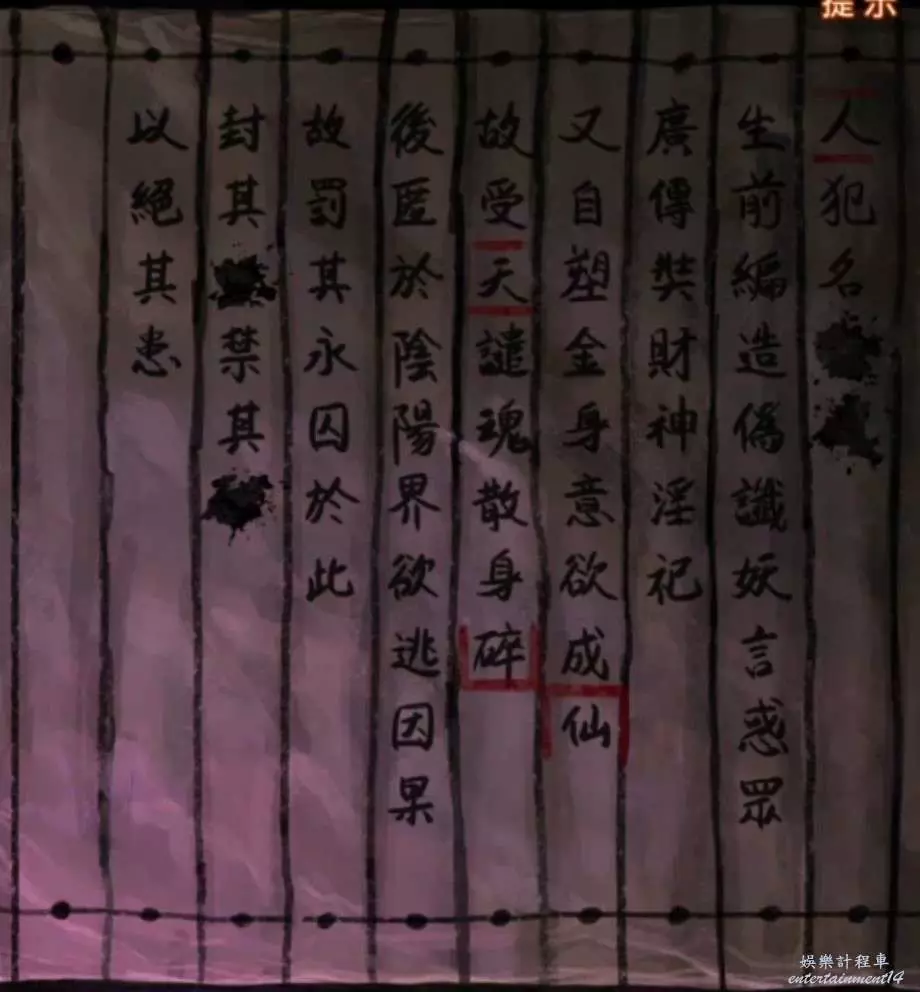 提示
人犯名
生前編造偽讖妖言惑眾
廣傳奘財神淫祀
又自塑金身意欲成仙
故受天譴魂散身碎
後匿於陰陽界欲逃因果
故罰其永囚於此
封其禁其
以絕其患
娛樂計程車
entertainment14